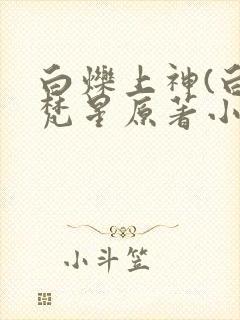 白烁上神(白
梵星原著小
小斗笠